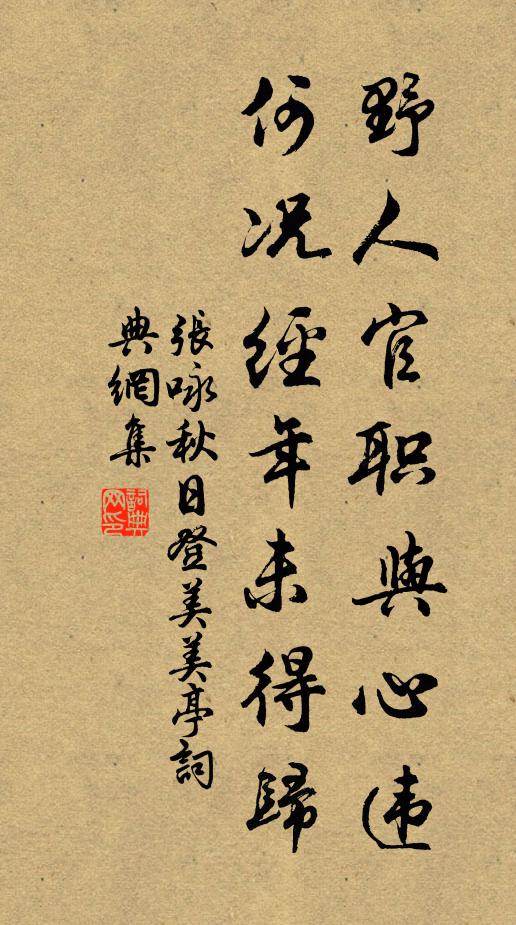 野人官职與心违
何况經年未得歸
張咏秋日登美美亭詞
典網集
詞典
网印